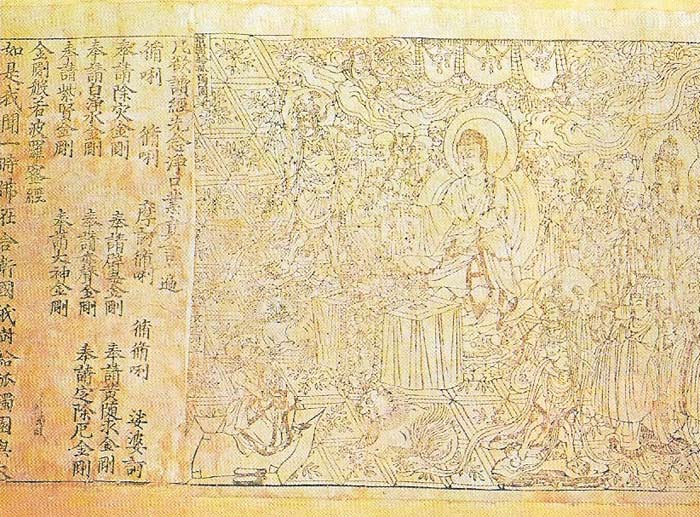 凡欲讀經先念淨口業真言一遍
脩唎 脩唎 摩訶脩唎 脩脩唎 娑婆訶
奉請除災金剛 奉請辟毒金剛 奉請黃随求金剛
奉請白淨水金剛 奉請赤聲金剛 奉請定除厄金剛
奉請紫賢金剛 奉請大神金剛
金剛般若波羅蜜經
如是我聞一時佛在舍衛國祇樹給孤獨園與大